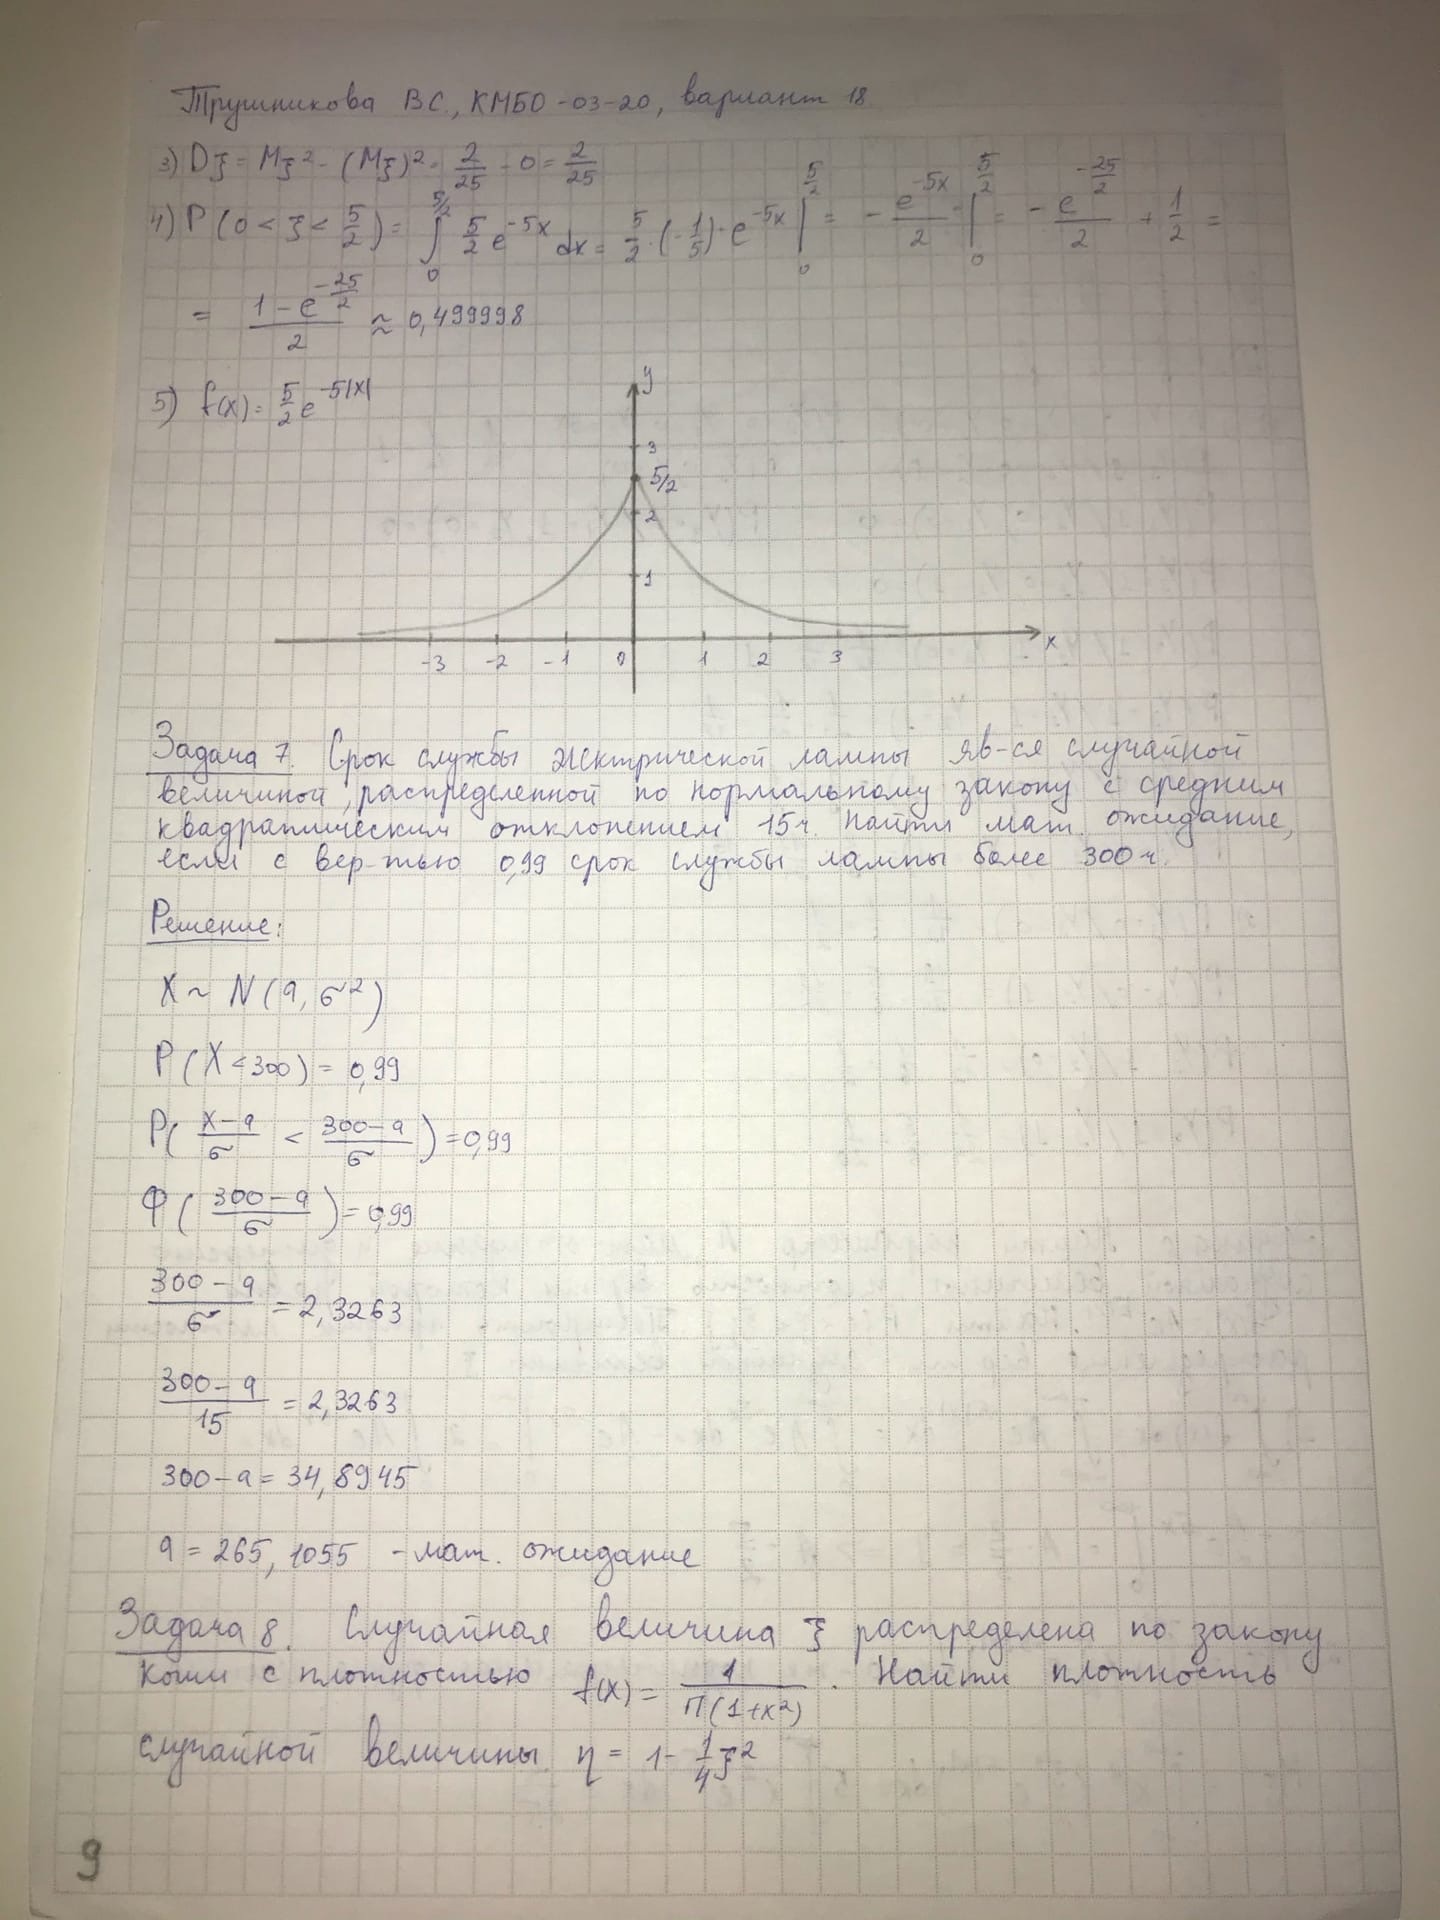 Трушникова ВС, КМБО-03-20, вариант 18
3) Dξ = Mξ² - (Mξ)² = 2/25 - 0 = 2/25
4) P(0 < ξ < 5/2) = ∫₀^{5/2} 5/2 e^{-5x} dx = 5/2 · (-1/5) · e^{-5x} |₀^{5/2} = - e^{-5x}/2 |₀^{5/2} = - e^{-25/2}/2 + 1/2 =
= (1 - e^{-25/2})/2 ≈ 0,499998
5) f(x) = 5/2 e^{-5|x|}
y
3
5/2
2
1
-3 -2 -1 0 1 2 3 x
Задача 7. Срок службы электрической лампы яв-ся случайной
величиной, распределенной по нормальному закону с средним
квадратическим отклонением 15 ч. Найти мат. ожидание,
если с вер-тью 0,99 срок службы лампы более 300 ч.
Решение:
X ~ N(a, σ²)
P(X < 300) = 0,99
P((X-a)/σ < (300-a)/σ) = 0,99
Φ((300-a)/σ) = 0,99
(300-a)/σ = 2,3263
(300-a)/15 = 2,3263
300-a = 34,8945
a = 265,1055 - мат. ожидание
Задача 8. Случайная величина ξ распределена по закону
Коши с плотностью f(x) = 1/(π(1+x²)). Найти плотность
случайной величины η = 1 - 1/4 ξ²
9